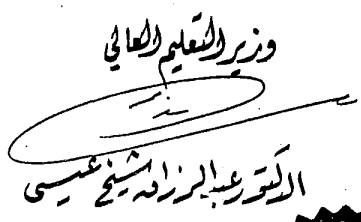 وزير التعليم العالي
الدكتور عبد الرزاق شيخ عيسى